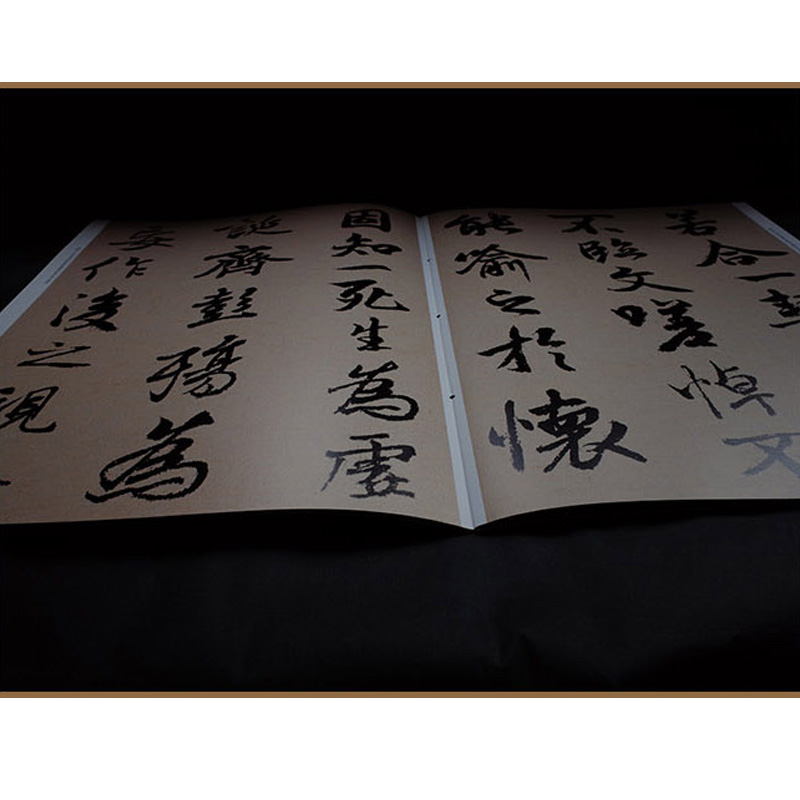 若合一契
不臨文嗟悼
能喻之於懷
固知一死生為虛
誕齊彭殤為
妄作後之視